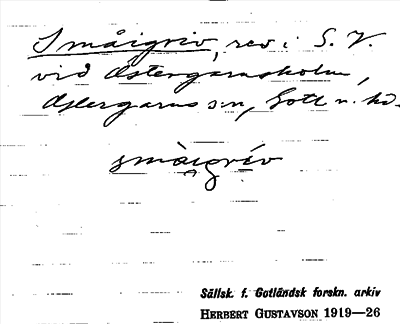 Småigriv, rev i S. V.
vid Östergarnsholm,
Östergarns s:n, Gotl. n. hd.
smàigrív
Sällsk. f. Gotländsk forskn. arkiv
HERBERT GUSTAVSON 1919—26